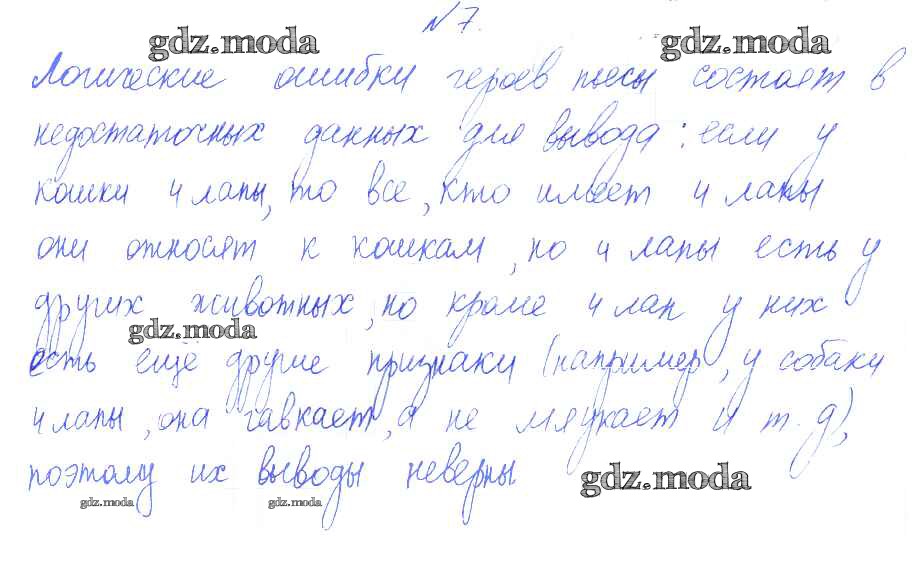 №7.
gdz.moda gdz.moda
Логические ошибки героев пьесы состоят в
недостаточных данных для вывода: если у
кошки 4 лапы, то все, кто имеет 4 лапы
они относят к кошкам, но 4 лапы есть у
других животных, но кроме 4 лап у них
gdz.moda
есть ещё другие признаки (например, у собаки
4 лапы, она гавкает, а не мяукает и т.д),
поэтому их выводы неверны
gdz.moda
gdz.moda gdz.moda